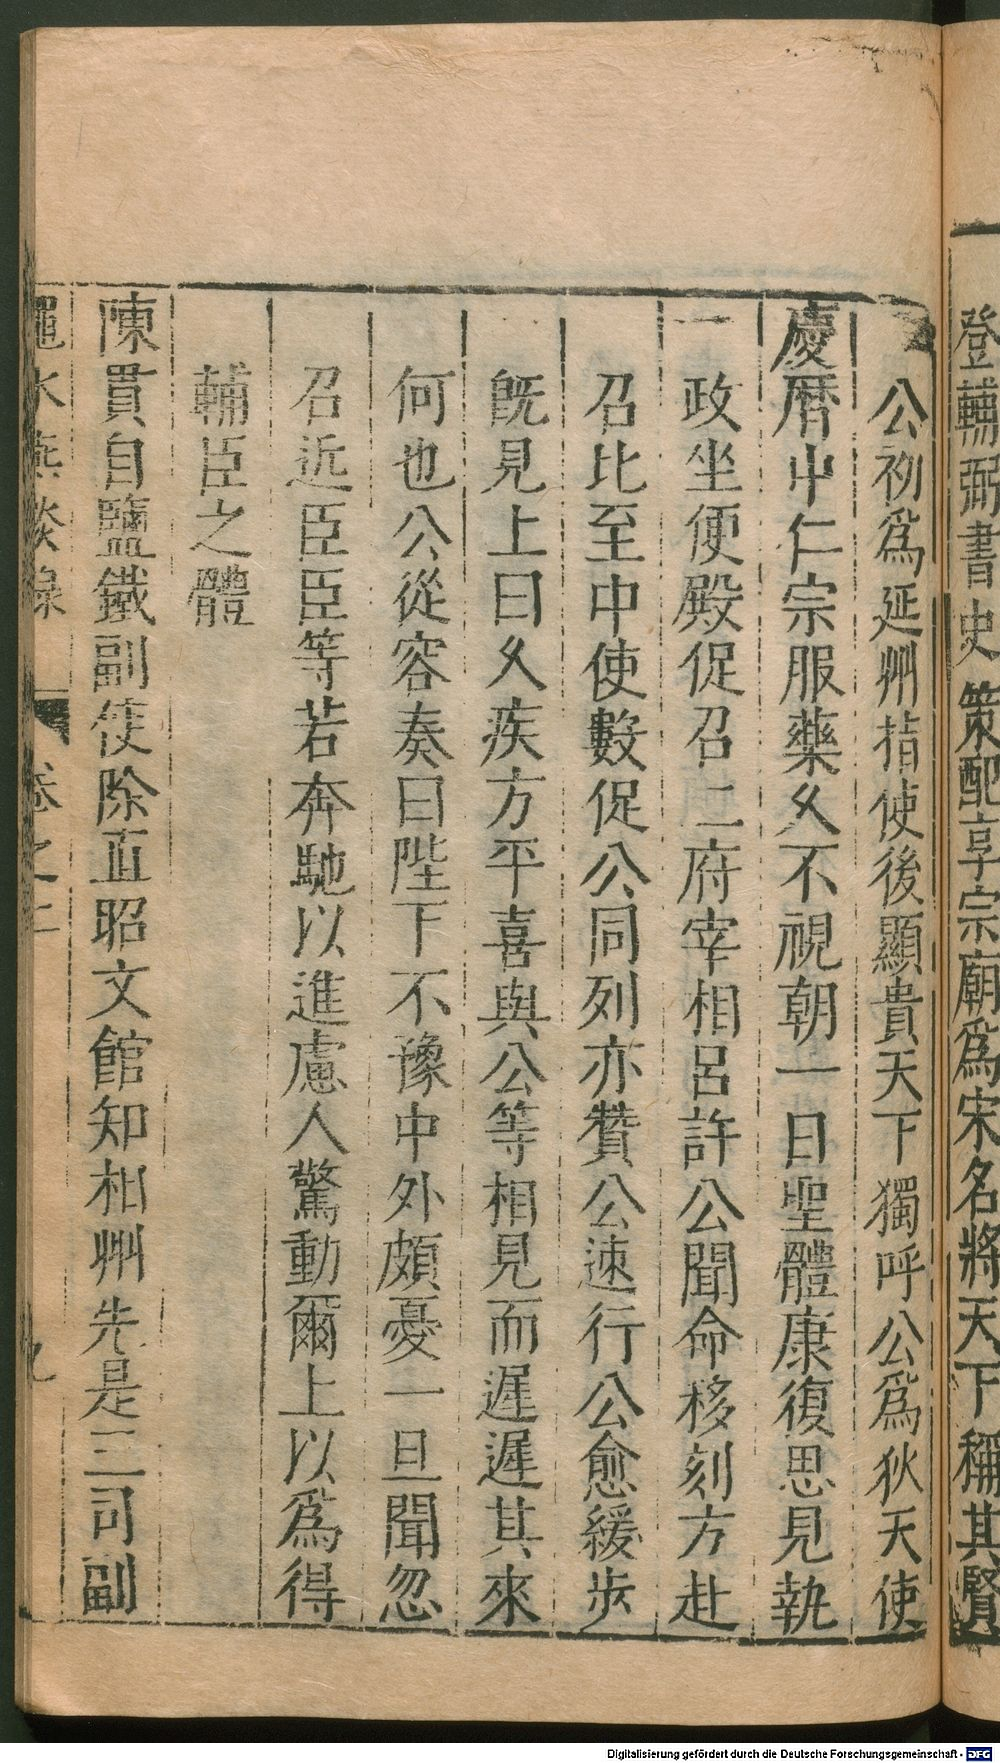 登輔弼書史策配享宗廟爲宋名將天下稱其賢
公初爲延州指使後顯貴天下獨呼公爲狄天使
慶曆中仁宗服藥久不視朝一日聖體康復思見執
政坐便殿促召二府宰相呂許公聞命移刻方赴
召比至中使數促公同列亦贊公速行公愈緩步
既見上曰久疾方平喜與公等相見而遲遲其來
何也公從容奏曰陛下不豫中外頗憂一旦聞忽
召近臣臣等若奔馳以進慮人驚動爾上以爲得
輔臣之體
陳貫自鹽鐵副使除直昭文館知相州先是三司副
澠水燕談錄 卷之二 九
Digitalisierung gefördert durch die Deutsche Forschungsgemeinschaft - DFG